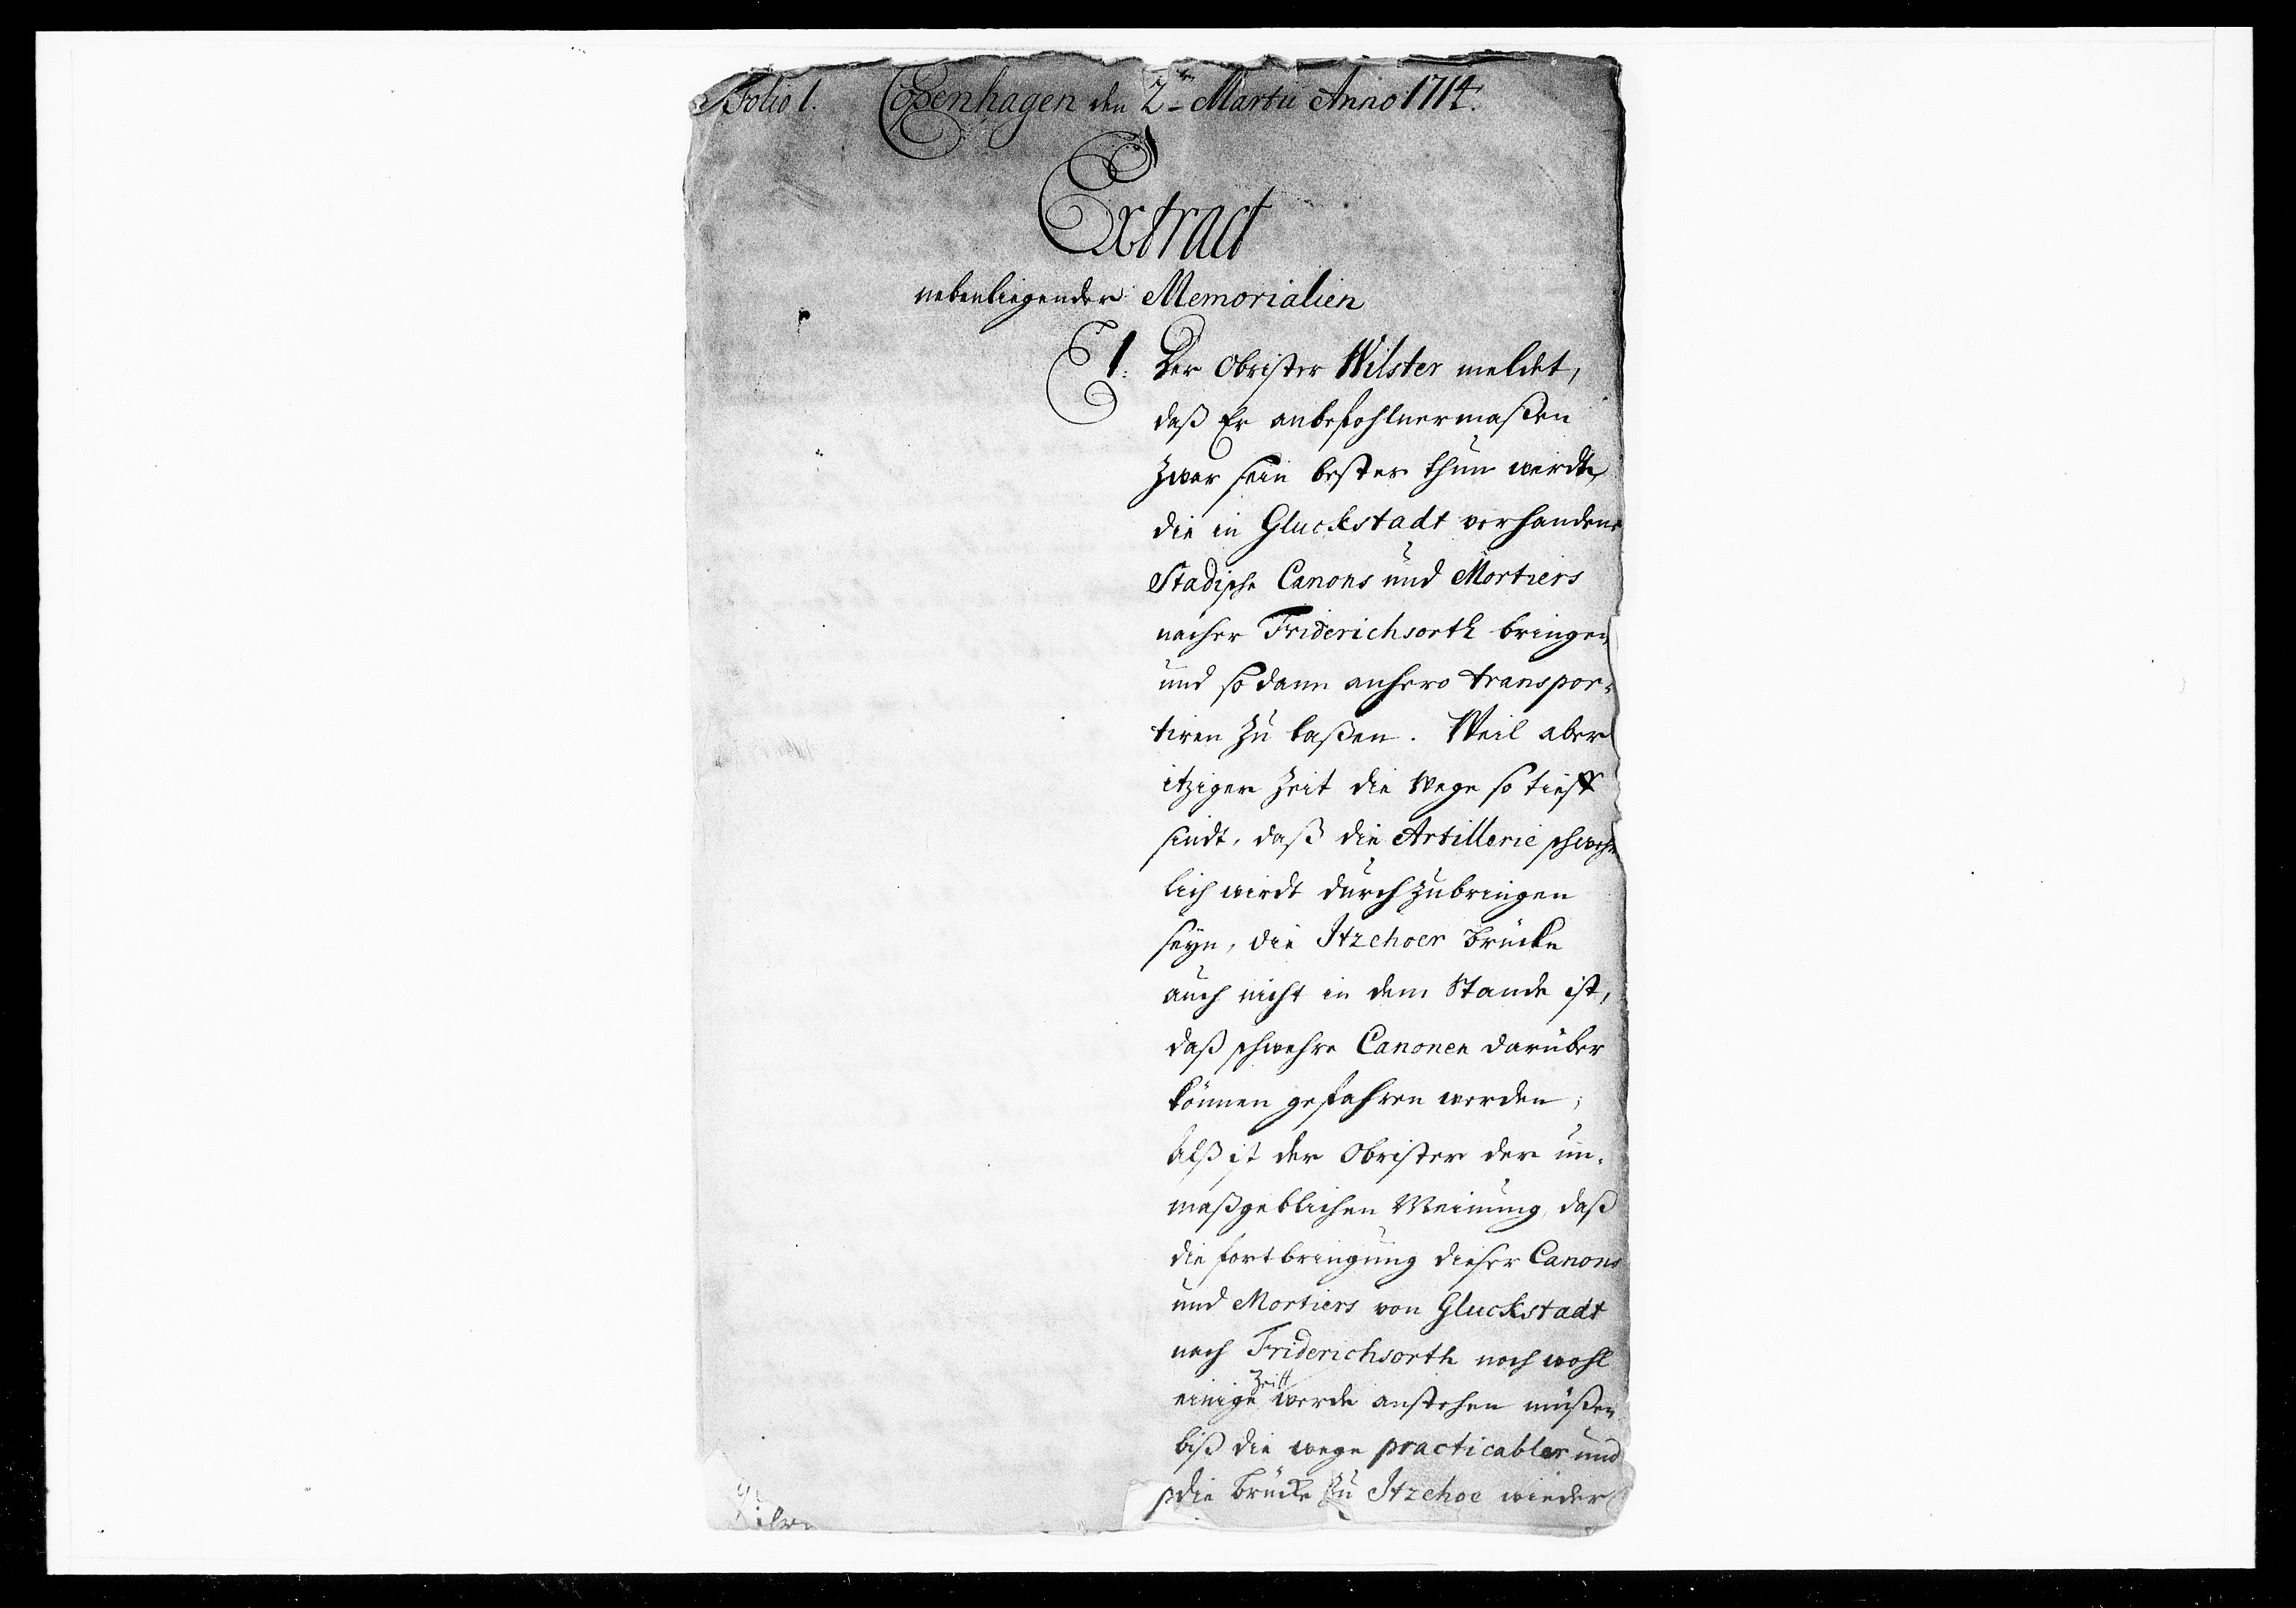 Folio 1. Copenhagen den 2ten Martii Anno 1714.
Extract
nebenliegender Memorialien
1. Der Obrister Wilster meldet,
daß Er anbefohlnermaßen
zwar sein bestes thun werdte,
die in Gluckstadt verhandene
Stadische Canons und Mortiers
nacher Friderichsorth bringen
und so dann anhero transpor-
tiren zu laßen. Weil aber
itziger Zeit die Wege so tieff
sindt, daß die Artillerie schwehr
lich wirdt durchzubringen
seyn, die Itzehoer Brücke
auch nicht in dem Stande ist,
daß schwehre Canonen darüber
können gefahren werden;
Alß ist der Obrister der un-
maßgeblichen Meinung, daß
die fortbringung dieser Canons
und Mortiers von Gluckstadt
nach Friderichsorth noch wohl
einige Zeitt werde anstehen müßen
biß die wege practicabler und
die Brücke zu Itzehoe wieder